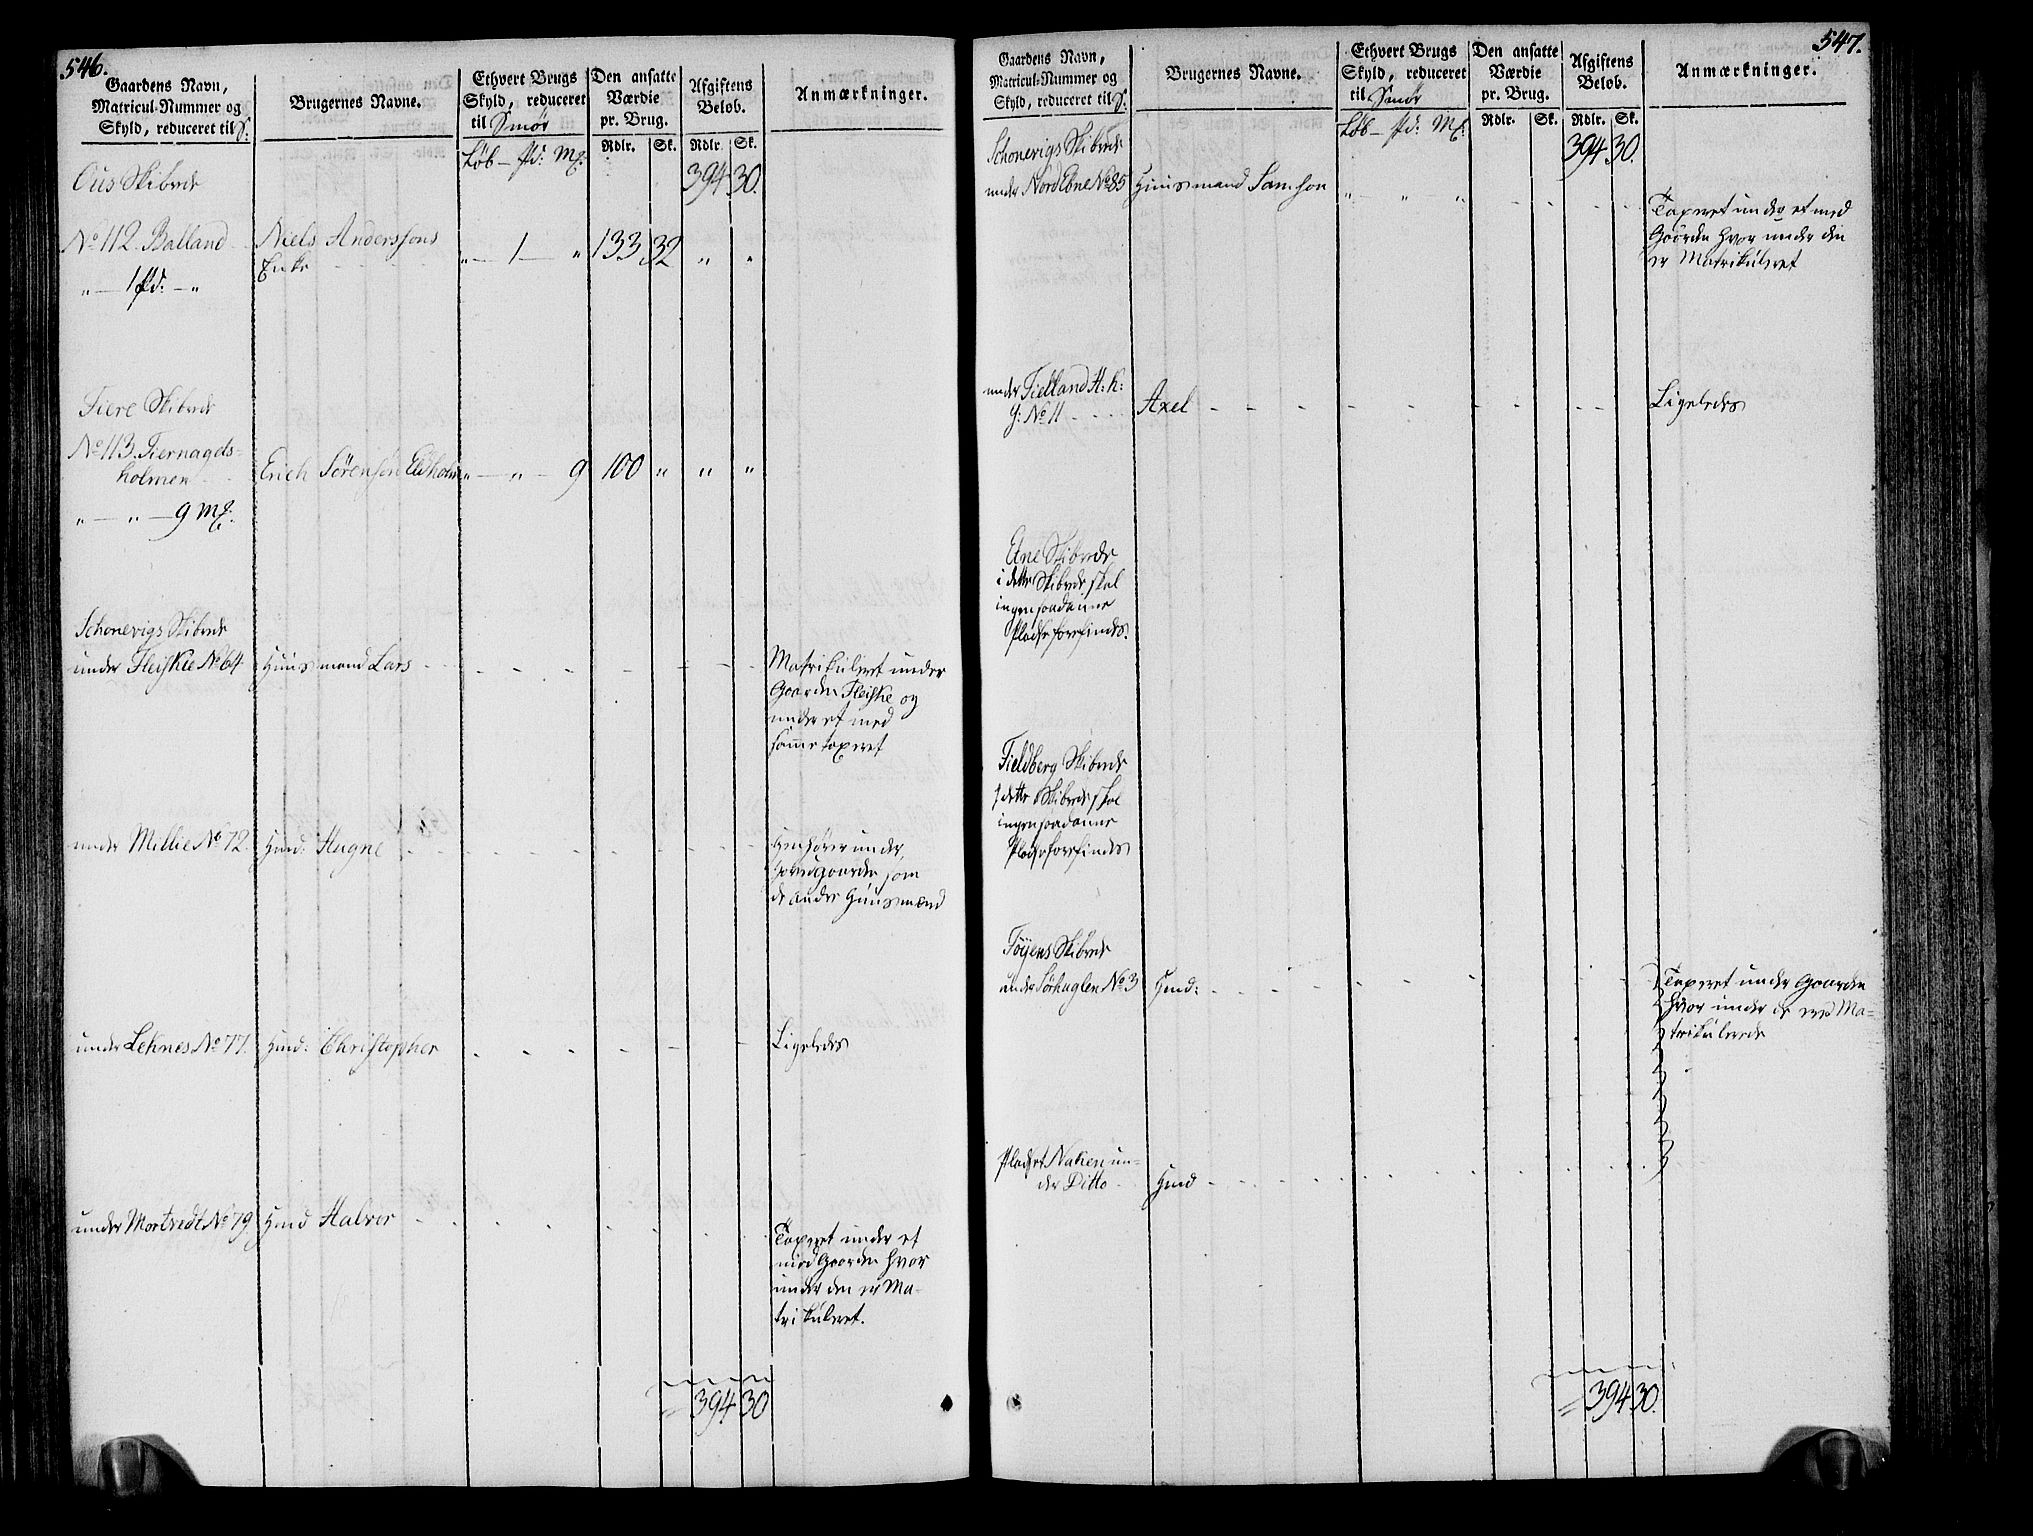 546.
Gaardens Navn,
Matricul-Nummer og
Skyld, reduceret til S:
Brugernes Navne.
Ethvert Brugs
Skyld, reduceret
til Smør
Den ansatte
Værdie
pr. Brug.
Afgiftens
Beløb.
Anmærkninger.
Rdlr. Sk. Rdlr. Sk.
Løb — Pd: Mk:
394 30.
Ous Skibrede
No 112. Balland
Niels Anderssøns
Enke
„ — 1 — „ 133 32 „ „
„ — 1 Pd: — „
Fiere Skibrede
No 113. Fiernagels-
holmen
Erich Sørensøn Eldholm „ — „ — 9 100 „ „ „
„ — „ — 9 Mk:
Schonevigs Skibrede
under Fleiskie No 64
Huusmand Lars
Matrikuleret under
Gaarden Fleiske og
under et med
samme taxeret
under Millie No 72.
Hmd: Hugne
Henhører under
Hovedgaarden som
de andre Huusmænd
under Leknes No 77.
Hmd: Christopher
Ligeledes
under Mortvedt No 79
Hmd Halvor
Taxeret under et
med Gaarden hvor
under den er Ma-
trikuleret.
394 30
547.
Gaardens Navn,
Matricul-Nummer og
Skyld, reduceret til S:
Brugernes Navne.
Ethvert Brugs
Skyld, reduceret
til Smør
Den ansatte
Værdie
pr. Brug.
Afgiftens
Beløb.
Anmærkninger.
Rdlr. Sk. Rdlr. Sk.
Løb — Pd: Mk:
394 30.
Schonevigs Skibrede
under Nord Ebne No 85
Huusmand Samson
„ „ „
Taxeret under et med
Gaarden hvor under den
er Matrikuleret
under Fielland H: K:
G: No 11
Axel
Ligeledes
Etne Skibrede
i dette Skibrede skal
ingen saadanne
Pladse forefindes.
Fieldberg Skibrede
I dette Skibrede skal
ingen saadanne
Pladse forefindes
Føyens Skibrede
under Sørhuglen No 3
Hmd:
Taxeret under Gaarden
hvor under de ere Ma-
trikulerede
Pladset Naken un-
der Ditto
Hmd
394 30.